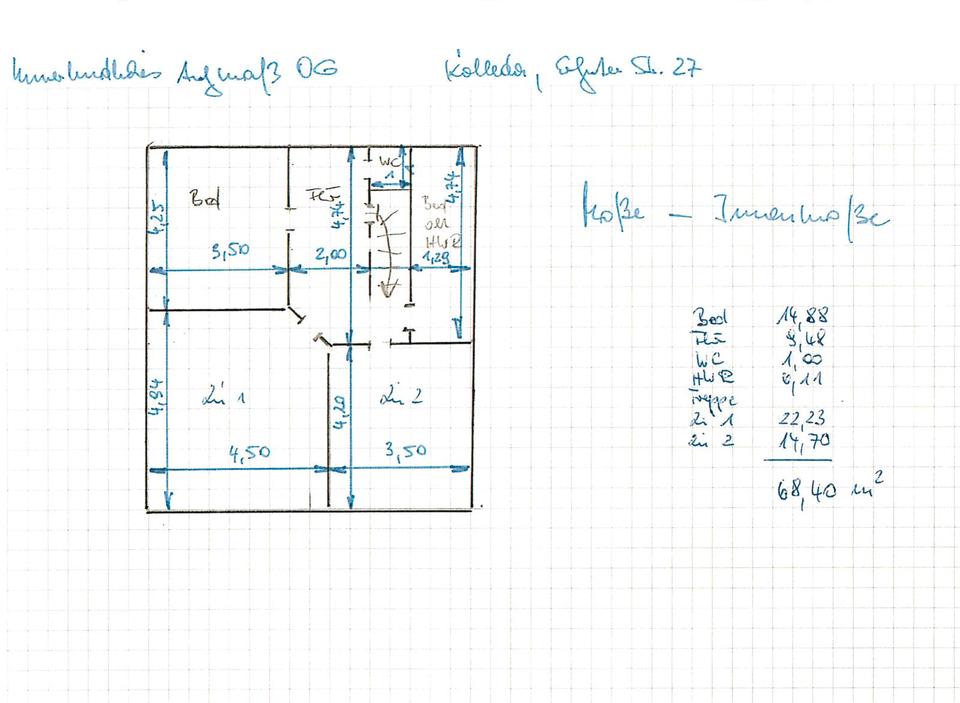 Aufmaß OG Kölleda, Erfurter Str. 27
Maße – Innenmaße
WC
1
1
Bad
Flur
Bad
oder
HWR
4,25
4,74
4,74
3,50
2,00
1,29
Zi 1
Zi 2
4,94
4,20
4,50
3,50
Bad 14,88
Flur 9,48
WC 1,00
HWR 6,11
Treppe
Zi 1 22,23
Zi 2 14,70
68,40 m²